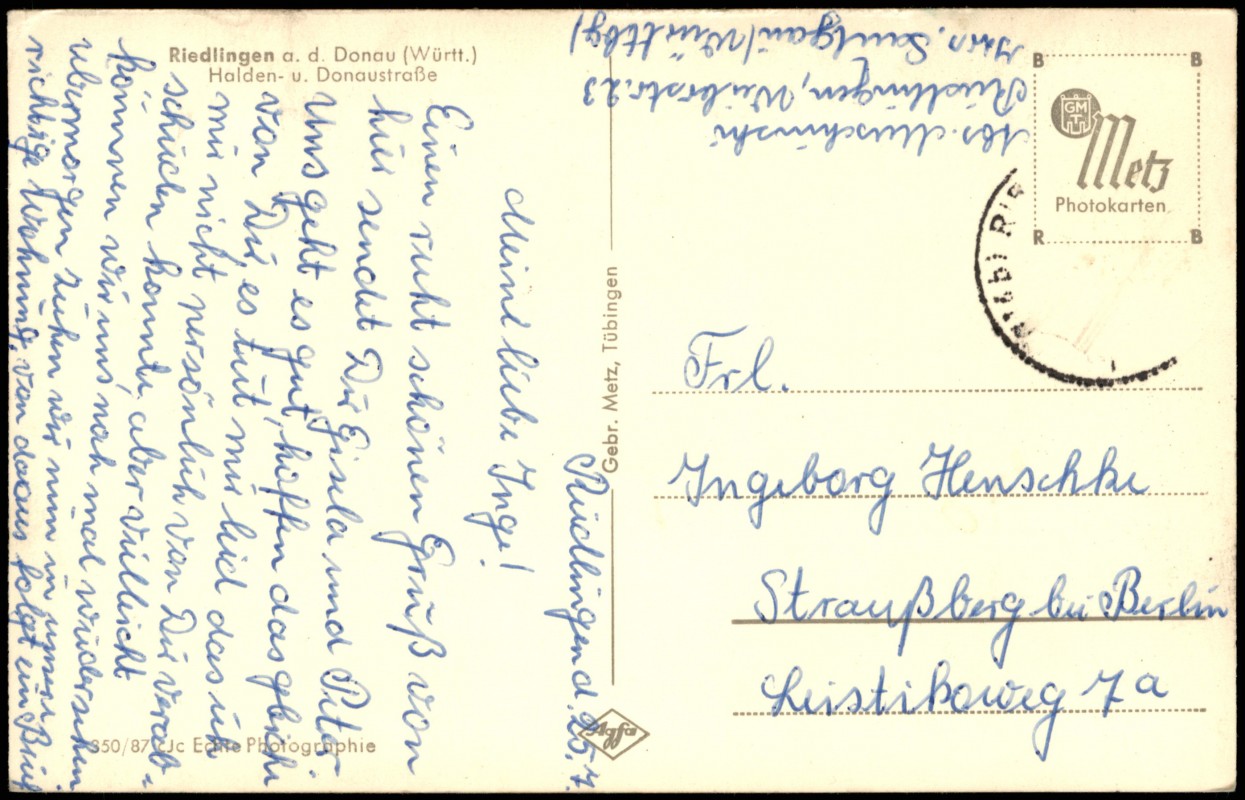 Riedlingen a. d. Donau (Württ.)
Halden- u. Donaustraße
Riedlingen d. 25.7.
Meine liebe Inge!
Einen recht schönen Gruß von
hier sendet Dir Gisela und Peter.
Uns geht es gut, hoffen das gleiche
von Dir, es tut mir leid das ich
mir nicht persönlich von Dir verab-
schieden konnte, aber vielleicht
können wir uns noch mal wiedersehen
übermorgen ziehen wir nun in unsere
richtige Wohnung, von daaus folgt ein Brief
350/87 cJc Echte Photographie
Gebr. Metz, Tübingen
Agfa
Abs. Muschinski
Riedlingen, Weilerstr. 23
Krs. Saulgau (Württbg)
R B B B
GMT
Metz
Photokarten
Frl.
Ingeborg Henschke
Straußberg bei Berlin
Leistikoweg 7a